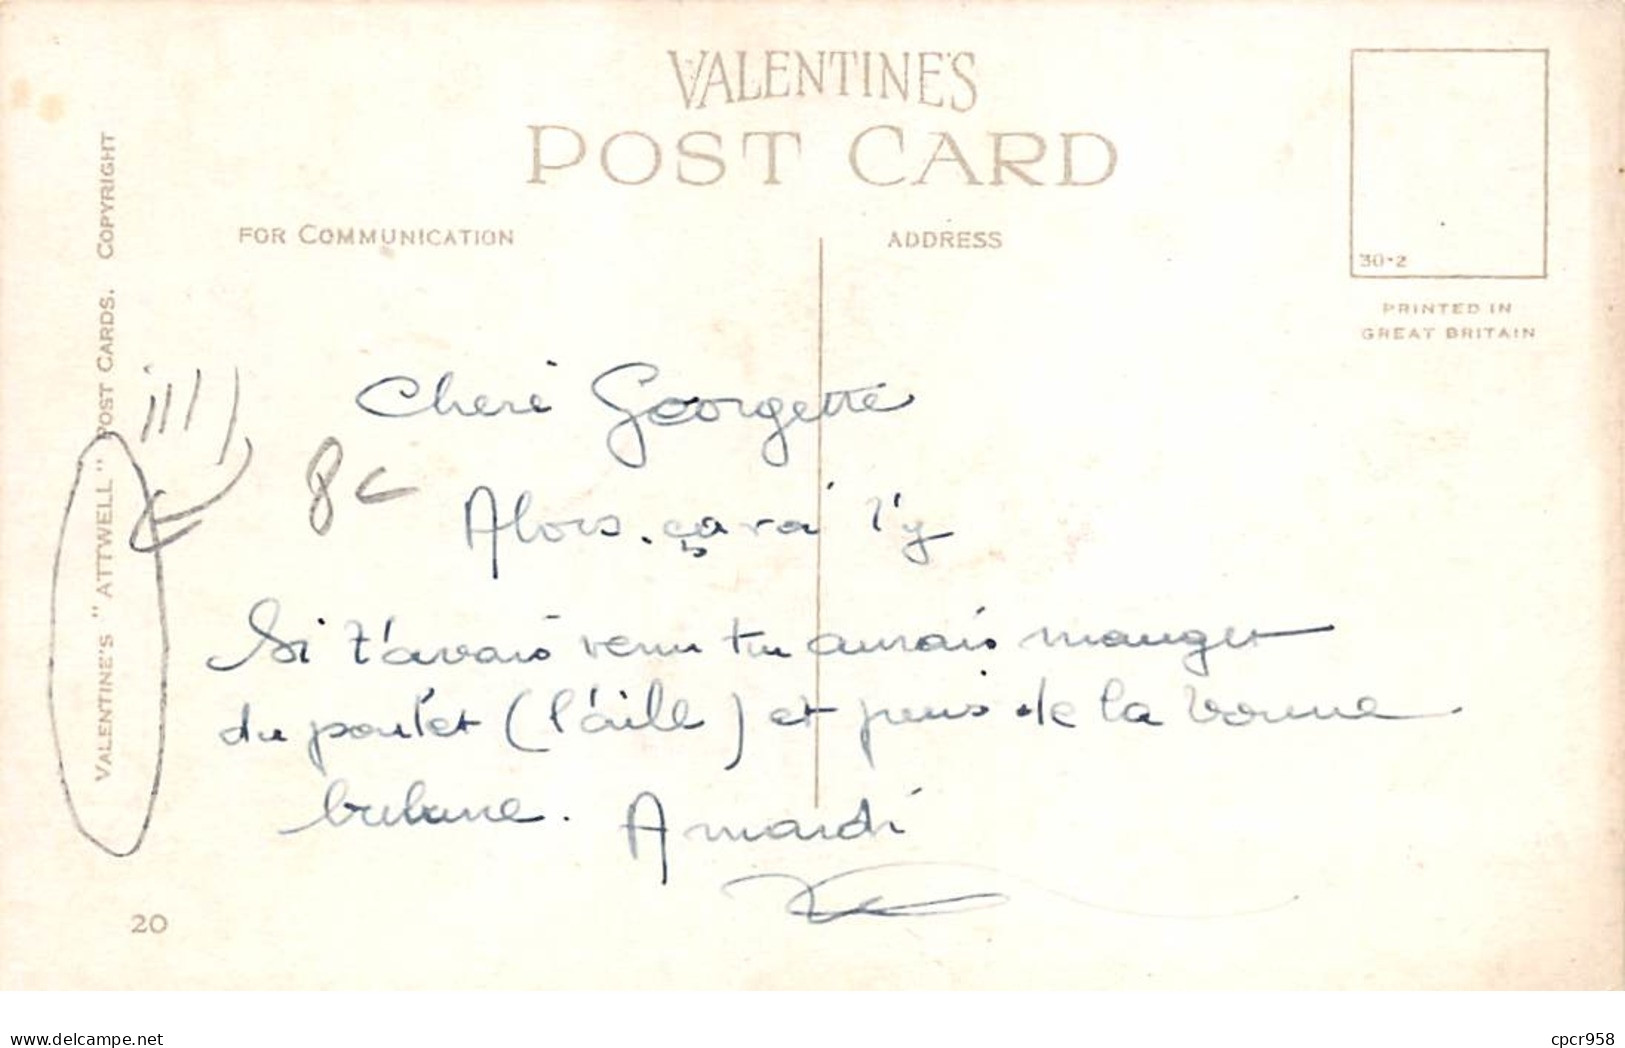 VALENTINE'S
POST CARD
FOR COMMUNICATION
ADDRESS
30-2
PRINTED IN
GREAT BRITAIN
VALENTINE'S "ATTWELL" POST CARDS. COPYRIGHT
8c
Cheri Georgette
Alors. ça va l'y
Si t'avais venu tu aurais manger
du poulet (l'aile) et puis de la bonne
A mardi
20
www.delcampe.net
cpcr958